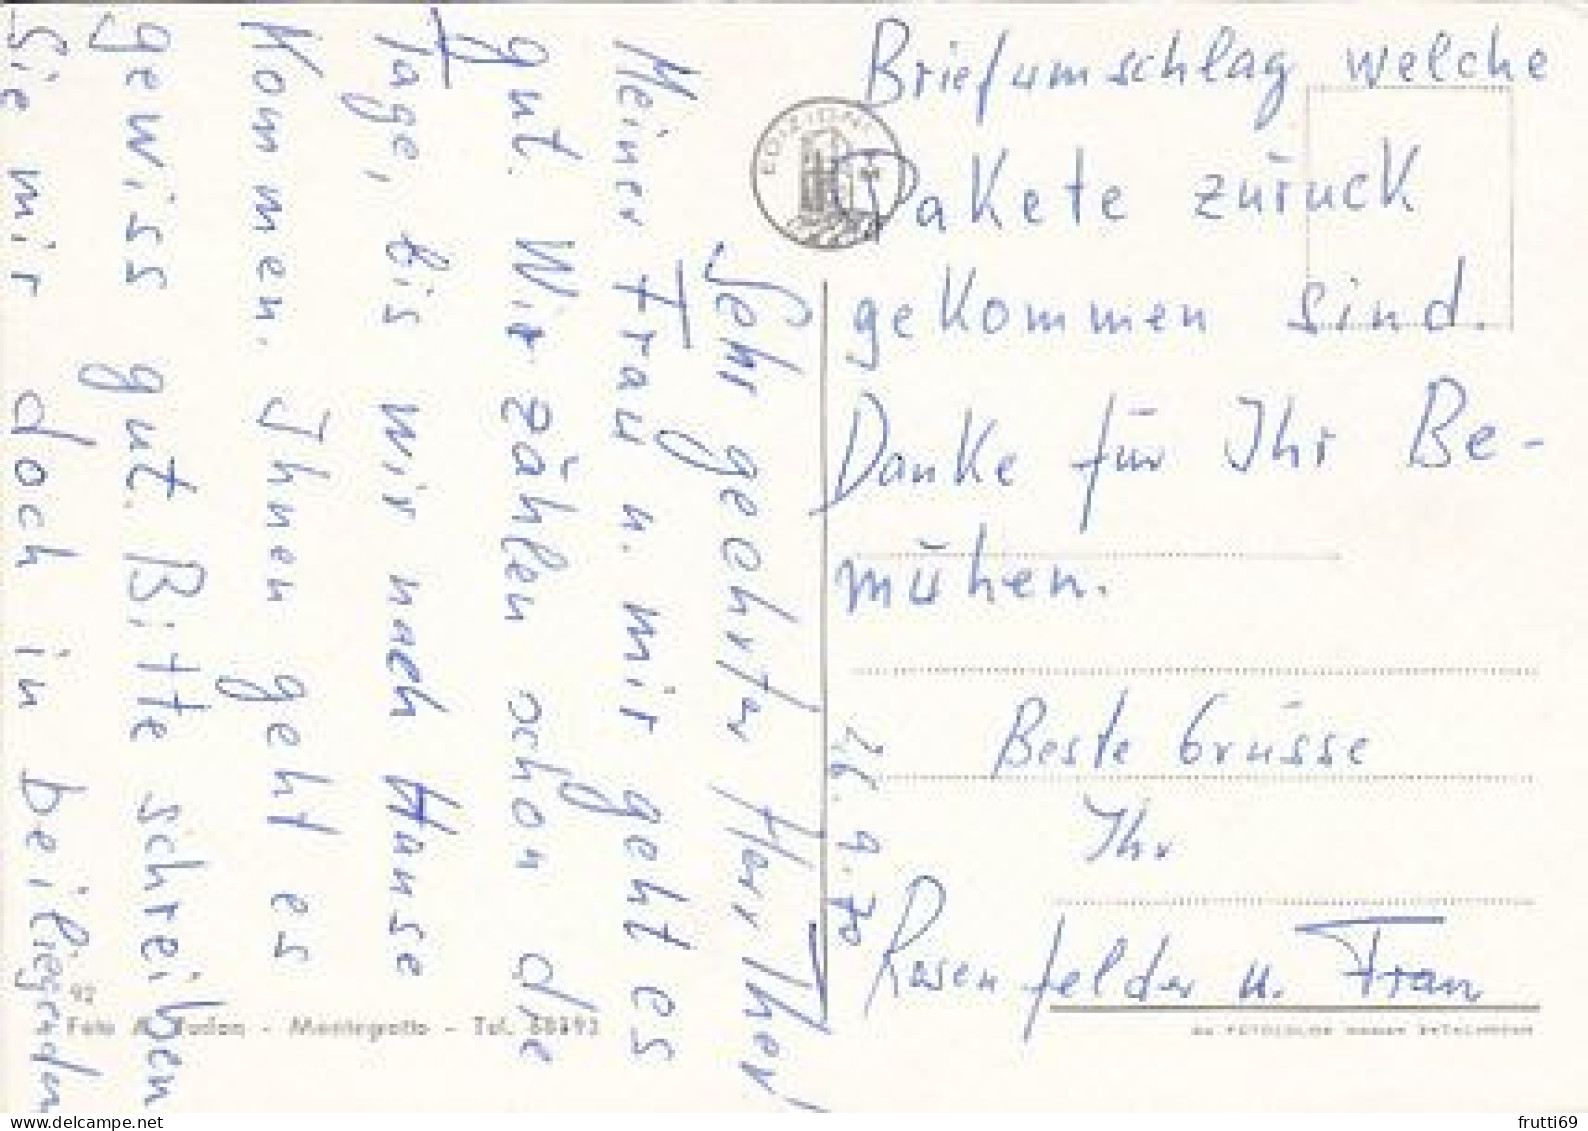 26. 9. 70
Sehr geehrter Herr Ther!
Meiner Frau u. mir geht es
gut. Wir zählen schon die
Tage, bis wir nach Hause
Kommen. Ihnen geht es
gewiss gut. Bitte schreiben
Sie mir doch in beiliegenden
Briefumschlag welche
Pakete zurück
gekommen sind.
Danke für Ihr Be-
mühen.
Beste Grüsse
Ihr
Rosenfelder u. Frau
EDIZIONI
92
Foto A. Tudon - Montegrotto - Tel. 88393
frutti69